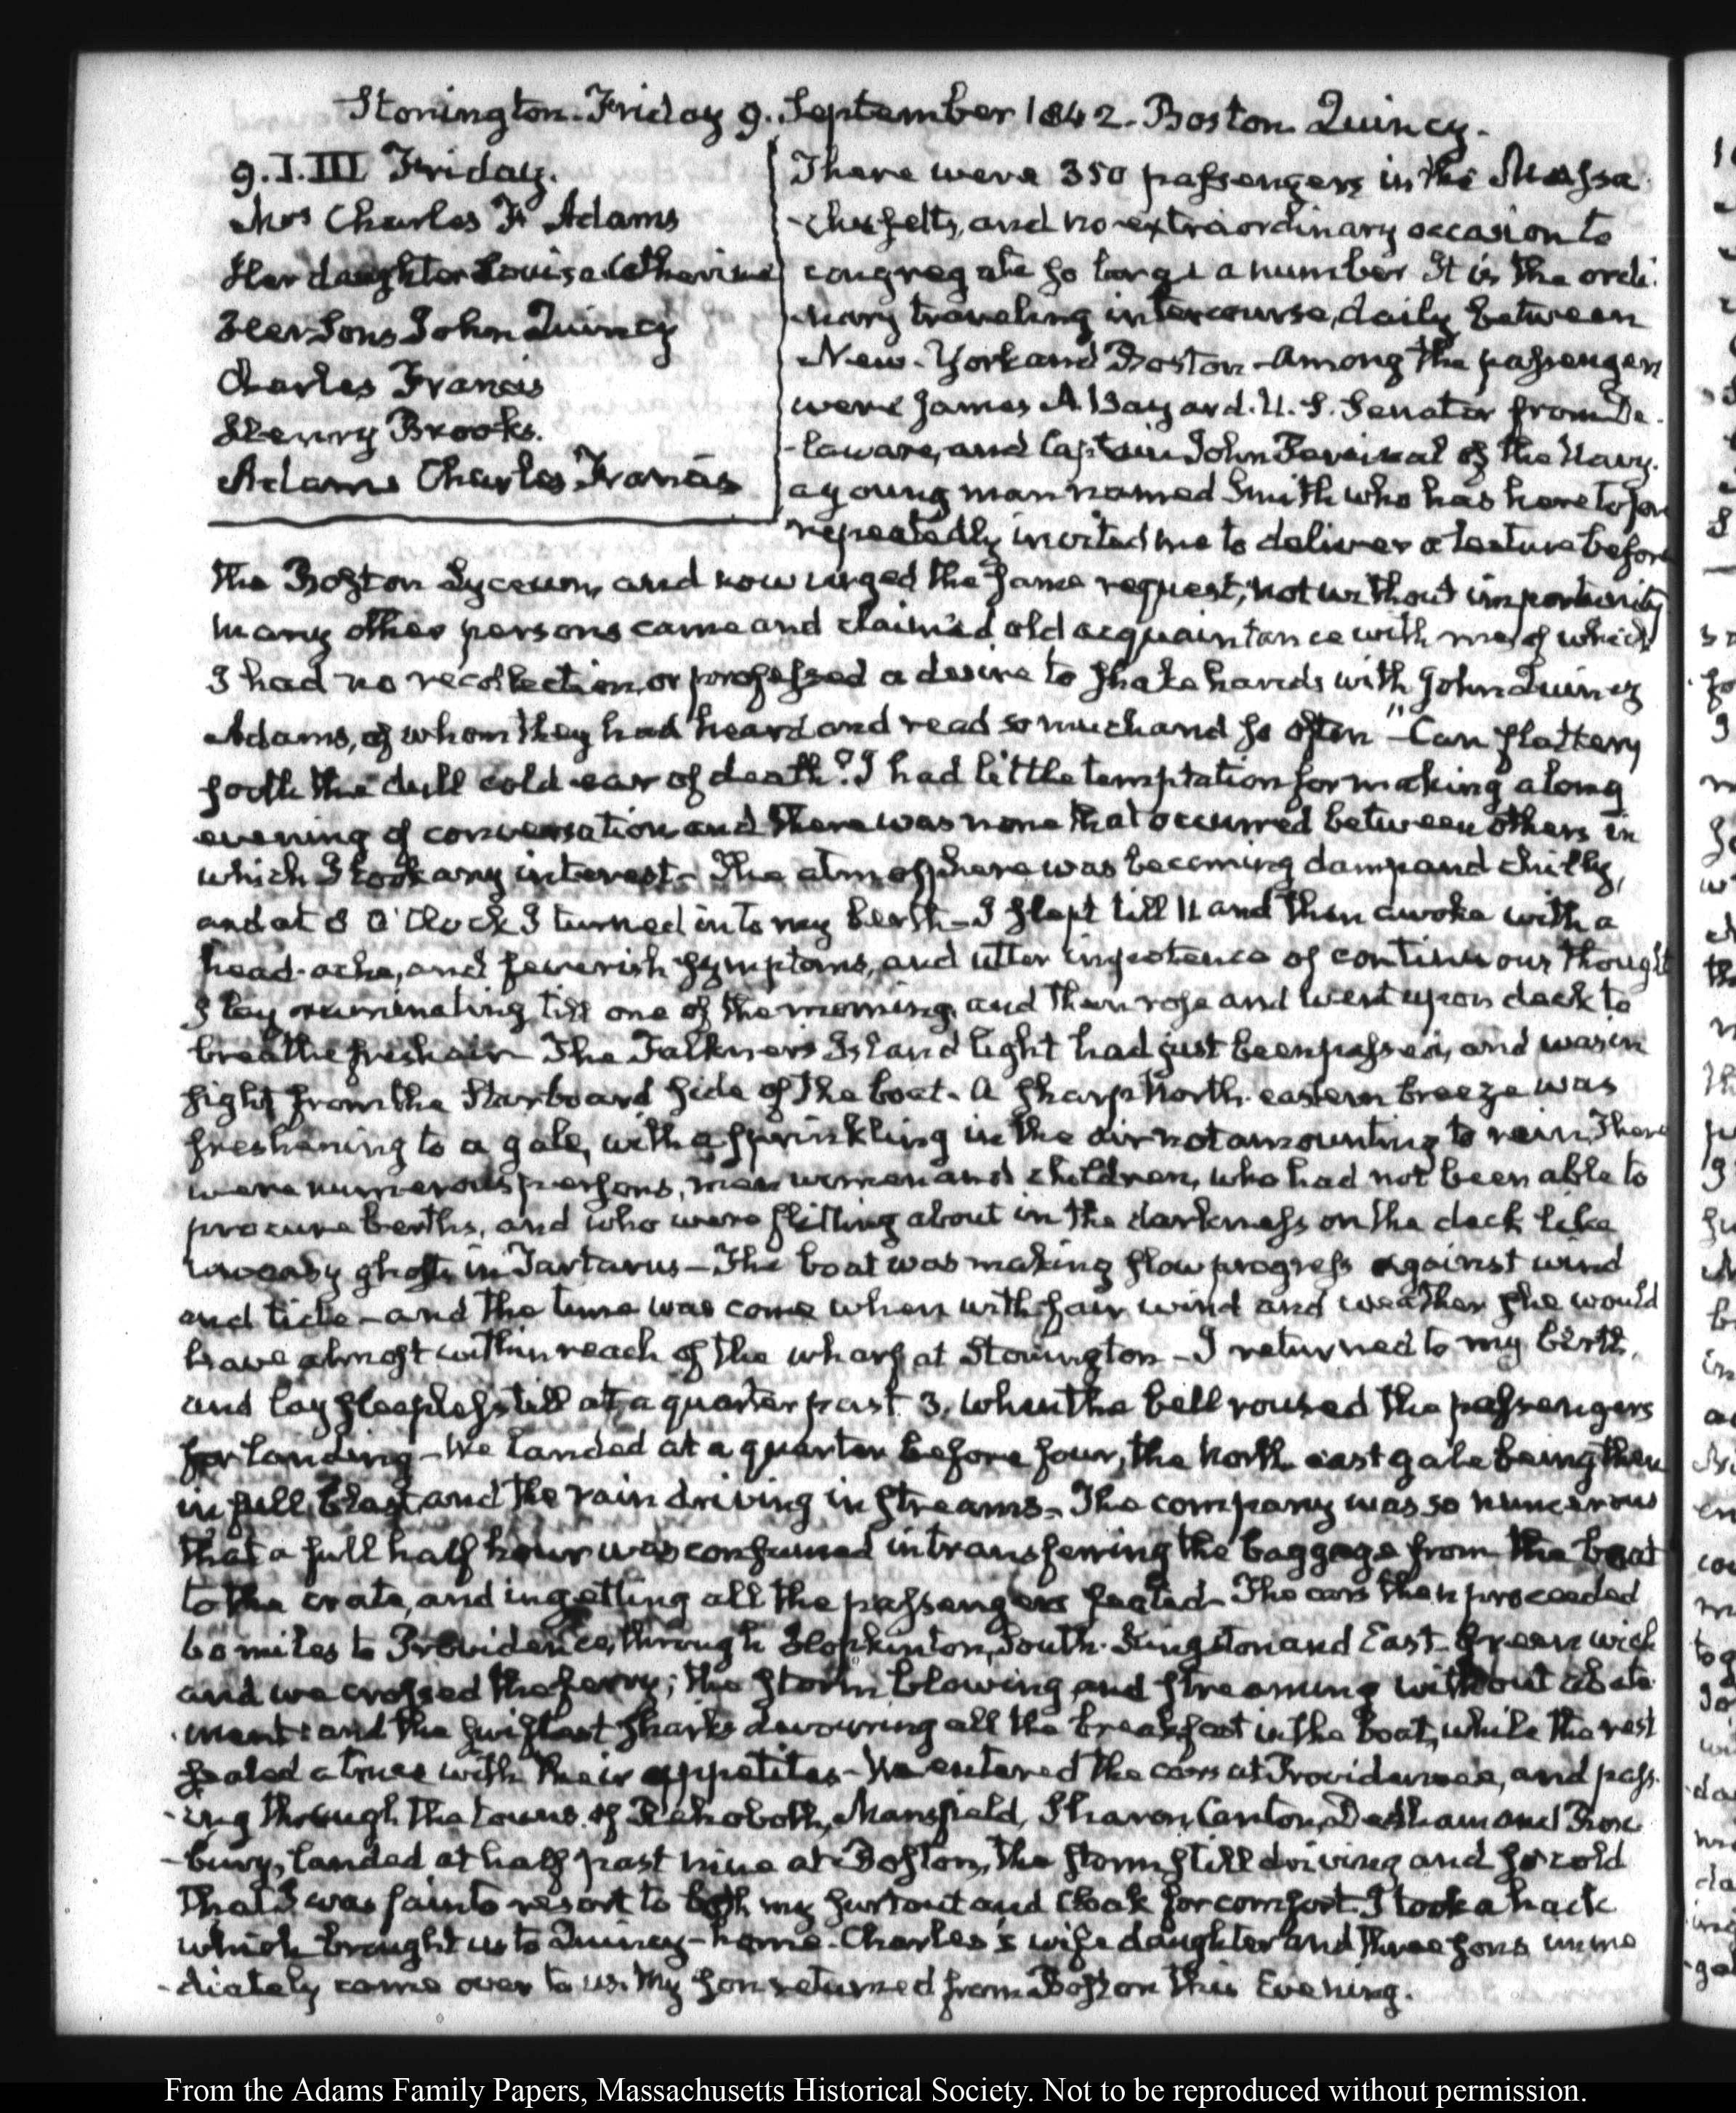 Stonington. Friday 9. September 1842. Boston Quincy.
9. I. III Friday.
Mrs Charles F. Adams
Her daughter Louisa Catherine
Her Sons John Quincy
Charles Francis
Henry Brooks.
Adams Charles Francis
There were 350 passengers in the Massa
-chusetts, and no extraordinary occasion to
congregate so large a number It is the ordi-
nary traveling intercourse, daily between
New-York and Boston - Among the passengers
were James A. Bayard. U. S. Senator from De-
-laware, and Captain John Percival of the Navy.
a young man named Smith who has heretofore
repeatedly invited me to deliver a lecture before
the Boston Lyceum, and now urged the same request, not without importunity
many other persons came and claimed old acquaintance with me, of which
I had no recollection, or professed a desire to shake hands with John Quincy
Adams, of whom they had heard and read so much and so often "Can flattery
sooth the dull cold ear of death? I had little temptation for making a long
evening of conversation and there was none that occurred between others in
which I took any interest - The atmosphere was becoming damp and chilly,
and at 8 O'Clock I turned into my berth - I slept till 11 and then awoke with a
head-ache, and feverish symptoms, and utter impotence of continuous thought
I lay ruminating till one of the morning, and then rose and went upon deck to
breathe fresh air - The Falkner's Island light had just been passed, and was in
sight from the Starboard side of the boat - A sharp North-eastern breeze was
freshening to a gale, with a sprinkling in the air not amounting to rain, There
were numerous persons, men women and children, who had not been able to
procure berths, and who were flitting about in the darkness on the deck like
uneasy ghosts in Tartarus - The boat was making slow progress against wind
and tide - and the time was come when with fair wind and weather she would
have almost within reach of the wharf at Stonington - I returned to my birth,
and lay sleepless till at a quarter past 3. when the bell roused the passengers
for landing - We landed at a quarter before four, the North east gale being then
in full blast and the rain driving in streams - The company was so numerous
that a full half hour was consumed in transferring the baggage from the boat
to the crate, and in getting all the passengers seated - The cars then proceeded
60 miles to Providence, through Hopkinton, South-Kingston and East-Greenwich
and we crossed the ferry; the storm blowing and streaming without abate-
-ment: and the swiftest sharks devouring all the breakfast in the boat, while the rest
sealed a truce with their appetites - We entered the cars at Providence, and pass-
-ing through the towns of Rehoboth, Mansfield, Sharon, Canton, Dedham and Rox-
-bury, landed at half past nine at Boston, the storm still driving and so cold
that I was fain to resort to both my surtout and cloak for comfort. I took a hack
which brought us to Quincy - home. Charles's wife daughter and three sons imme
-diately came over to us. My son returned from Boston this Evening.
From the Adams Family Papers, Massachusetts Historical Society. Not to be reproduced without permission.